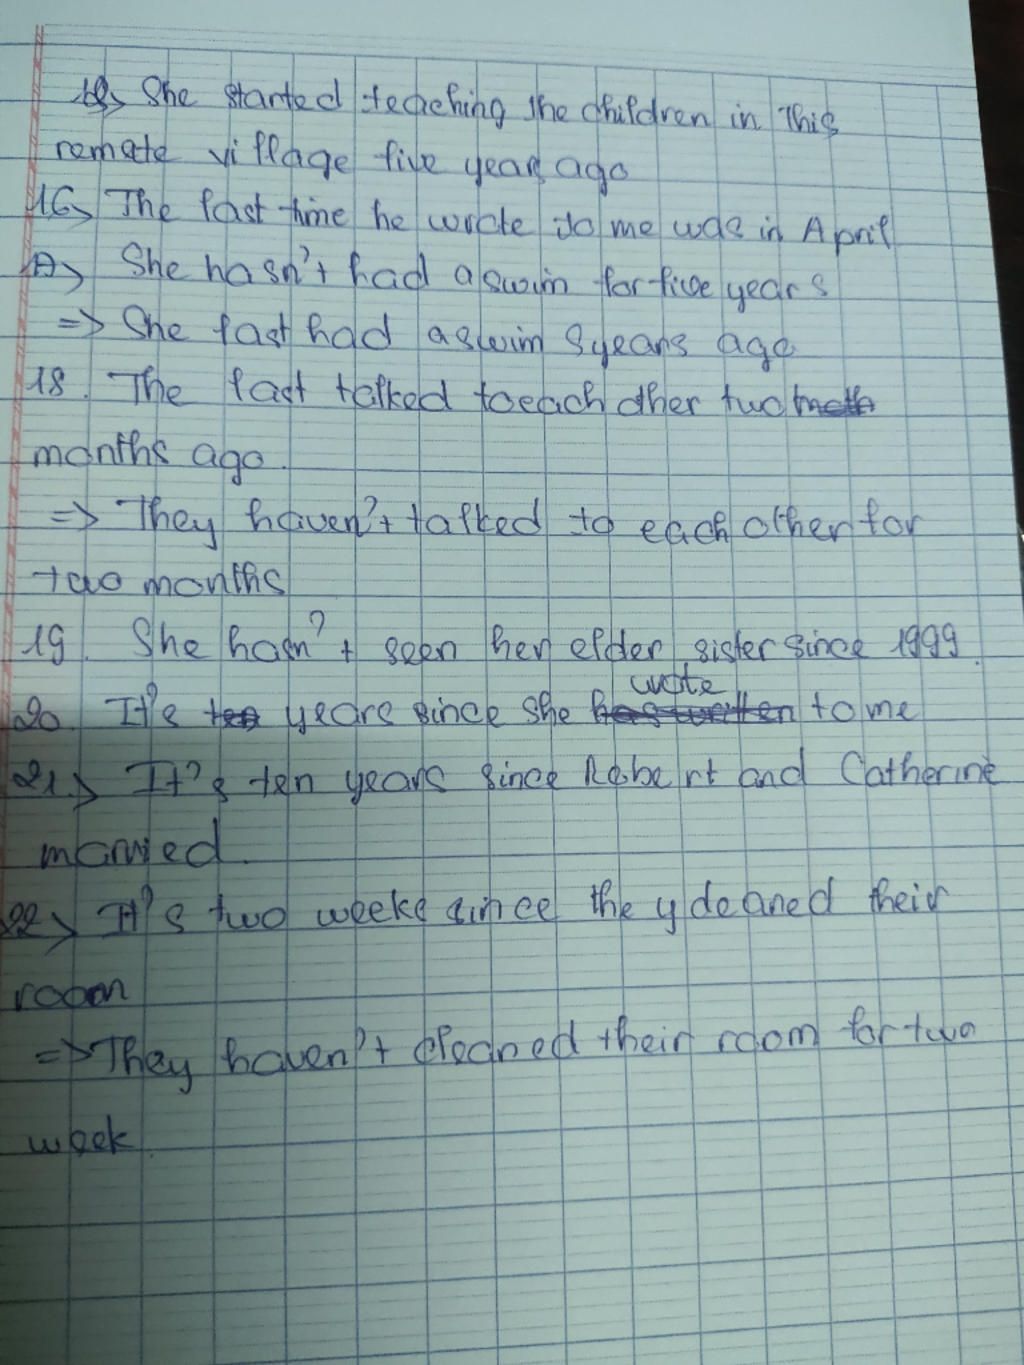 15> She started teaching the children in this
remote village five years ago
16> The last time he wrote to me was in April
17> She hasn't had a swim for five years
=> She last had a swim 5 years ago
18. The last talked to each other two
months ago.
=> They haven't talked to each other for
two months
19. She hasn't seen her elder sister since 1999.
20. It's years since she wrote to me
21.> It's ten years since Robert and Catherine
married.
22> It's two weeks since they cleaned their
room
=> They haven't cleaned their room for two
week.